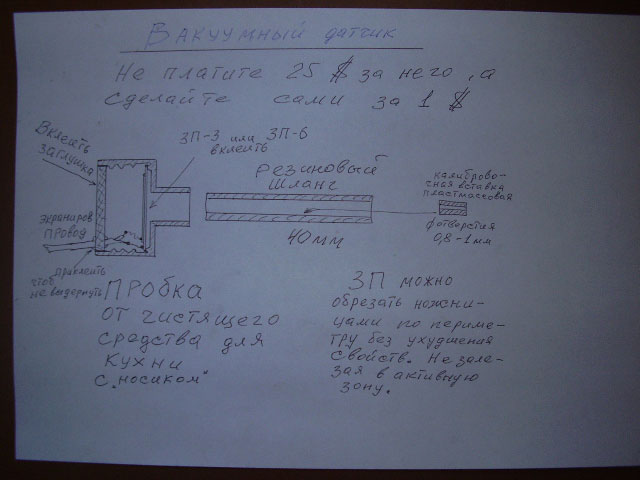 Вакуумный датчик
Не платите 25 $ за него, а
сделайте сами за 1 $
Вклеить
заглушка
ЗП-3 или ЗП-6
вклеить
экраниров
провод
приклеить
чтоб
не выдернуть
Резиновый
шланг
40мм
калиброво-
чная вставка
пластмасковая
ф отверстия
0,8-1мм
ПРОБКА
от чистящего
средства для
кухни
с "носиком"
ЗП можно
обрезать ножни-
цами по периме-
тру без ухудшения
свойств. Не зале-
зая в активную
зону.